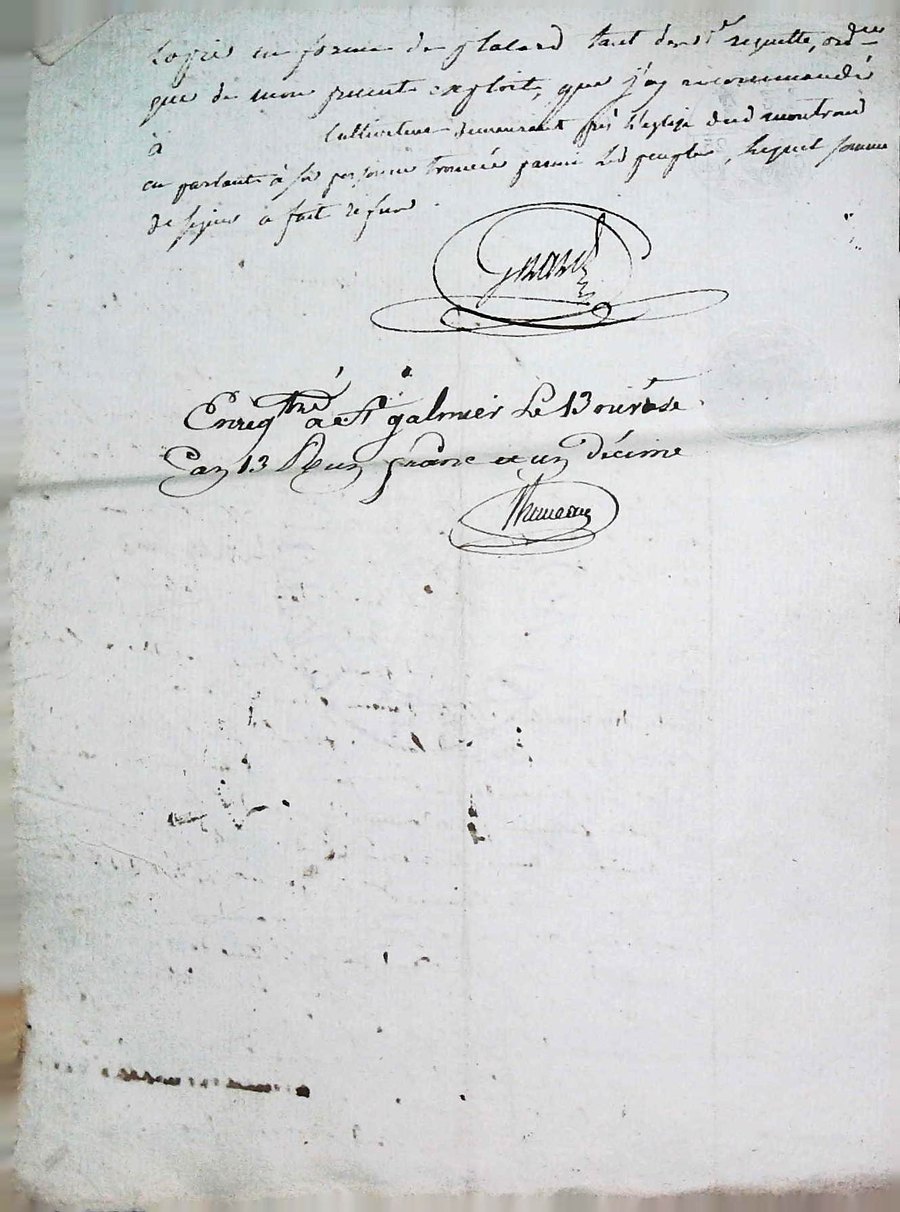 copie en forme de placard tant desd. requette, ordce
que de mon present exploit, que j'ay recommandé
à cultivateur demeurant près l'eglise dud montrond
en parlant à sa personne trouvée parmi led peuple, lequel sommé
de signer a fait refus.
Girard
Enregtré à St galmier Le 13 nivôse
an 13 Reçu franc et un décime